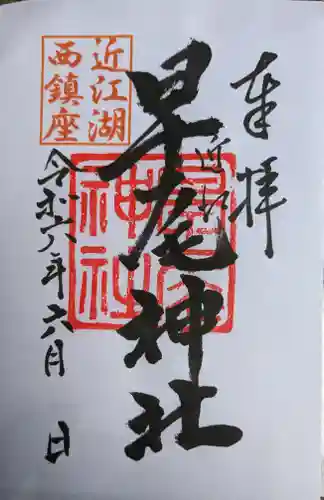 奉拝
近江
早尾神社
近江湖
西鎮座
早尾
神社
令和六年六月 日